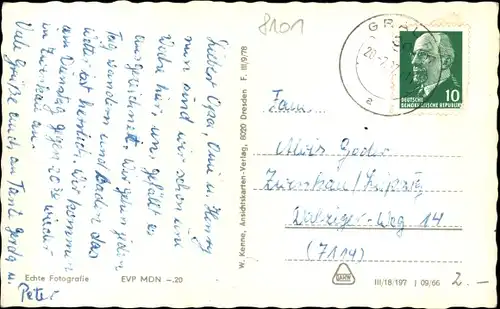 8101
Lieber Opa, Omi u. Henry
nun sind wir schon eine
Woche hier, uns gefällt es
ausgezeichnet. Wir gehen jeden
Tag wandern und baden das
Wetter ist herrlich. Wir kommen
am Dienstag gegen 20 30 wieder
in Zwenkau an.
Viele Grüße auch an Tante Gerda u.
Peter
Echte Fotografie EVP MDN –,20
W. Kenne, Ansichtskarten-Verlag, 8020 Dresden F. III/9/78
GRAL
DEUTSCHE
DEMOKRATISCHE REPUBLIK
10
Fam.
Alois
Zwenkau/Leipzig
Weg 14
(7114)
III/18/197 J 09/66
2.–